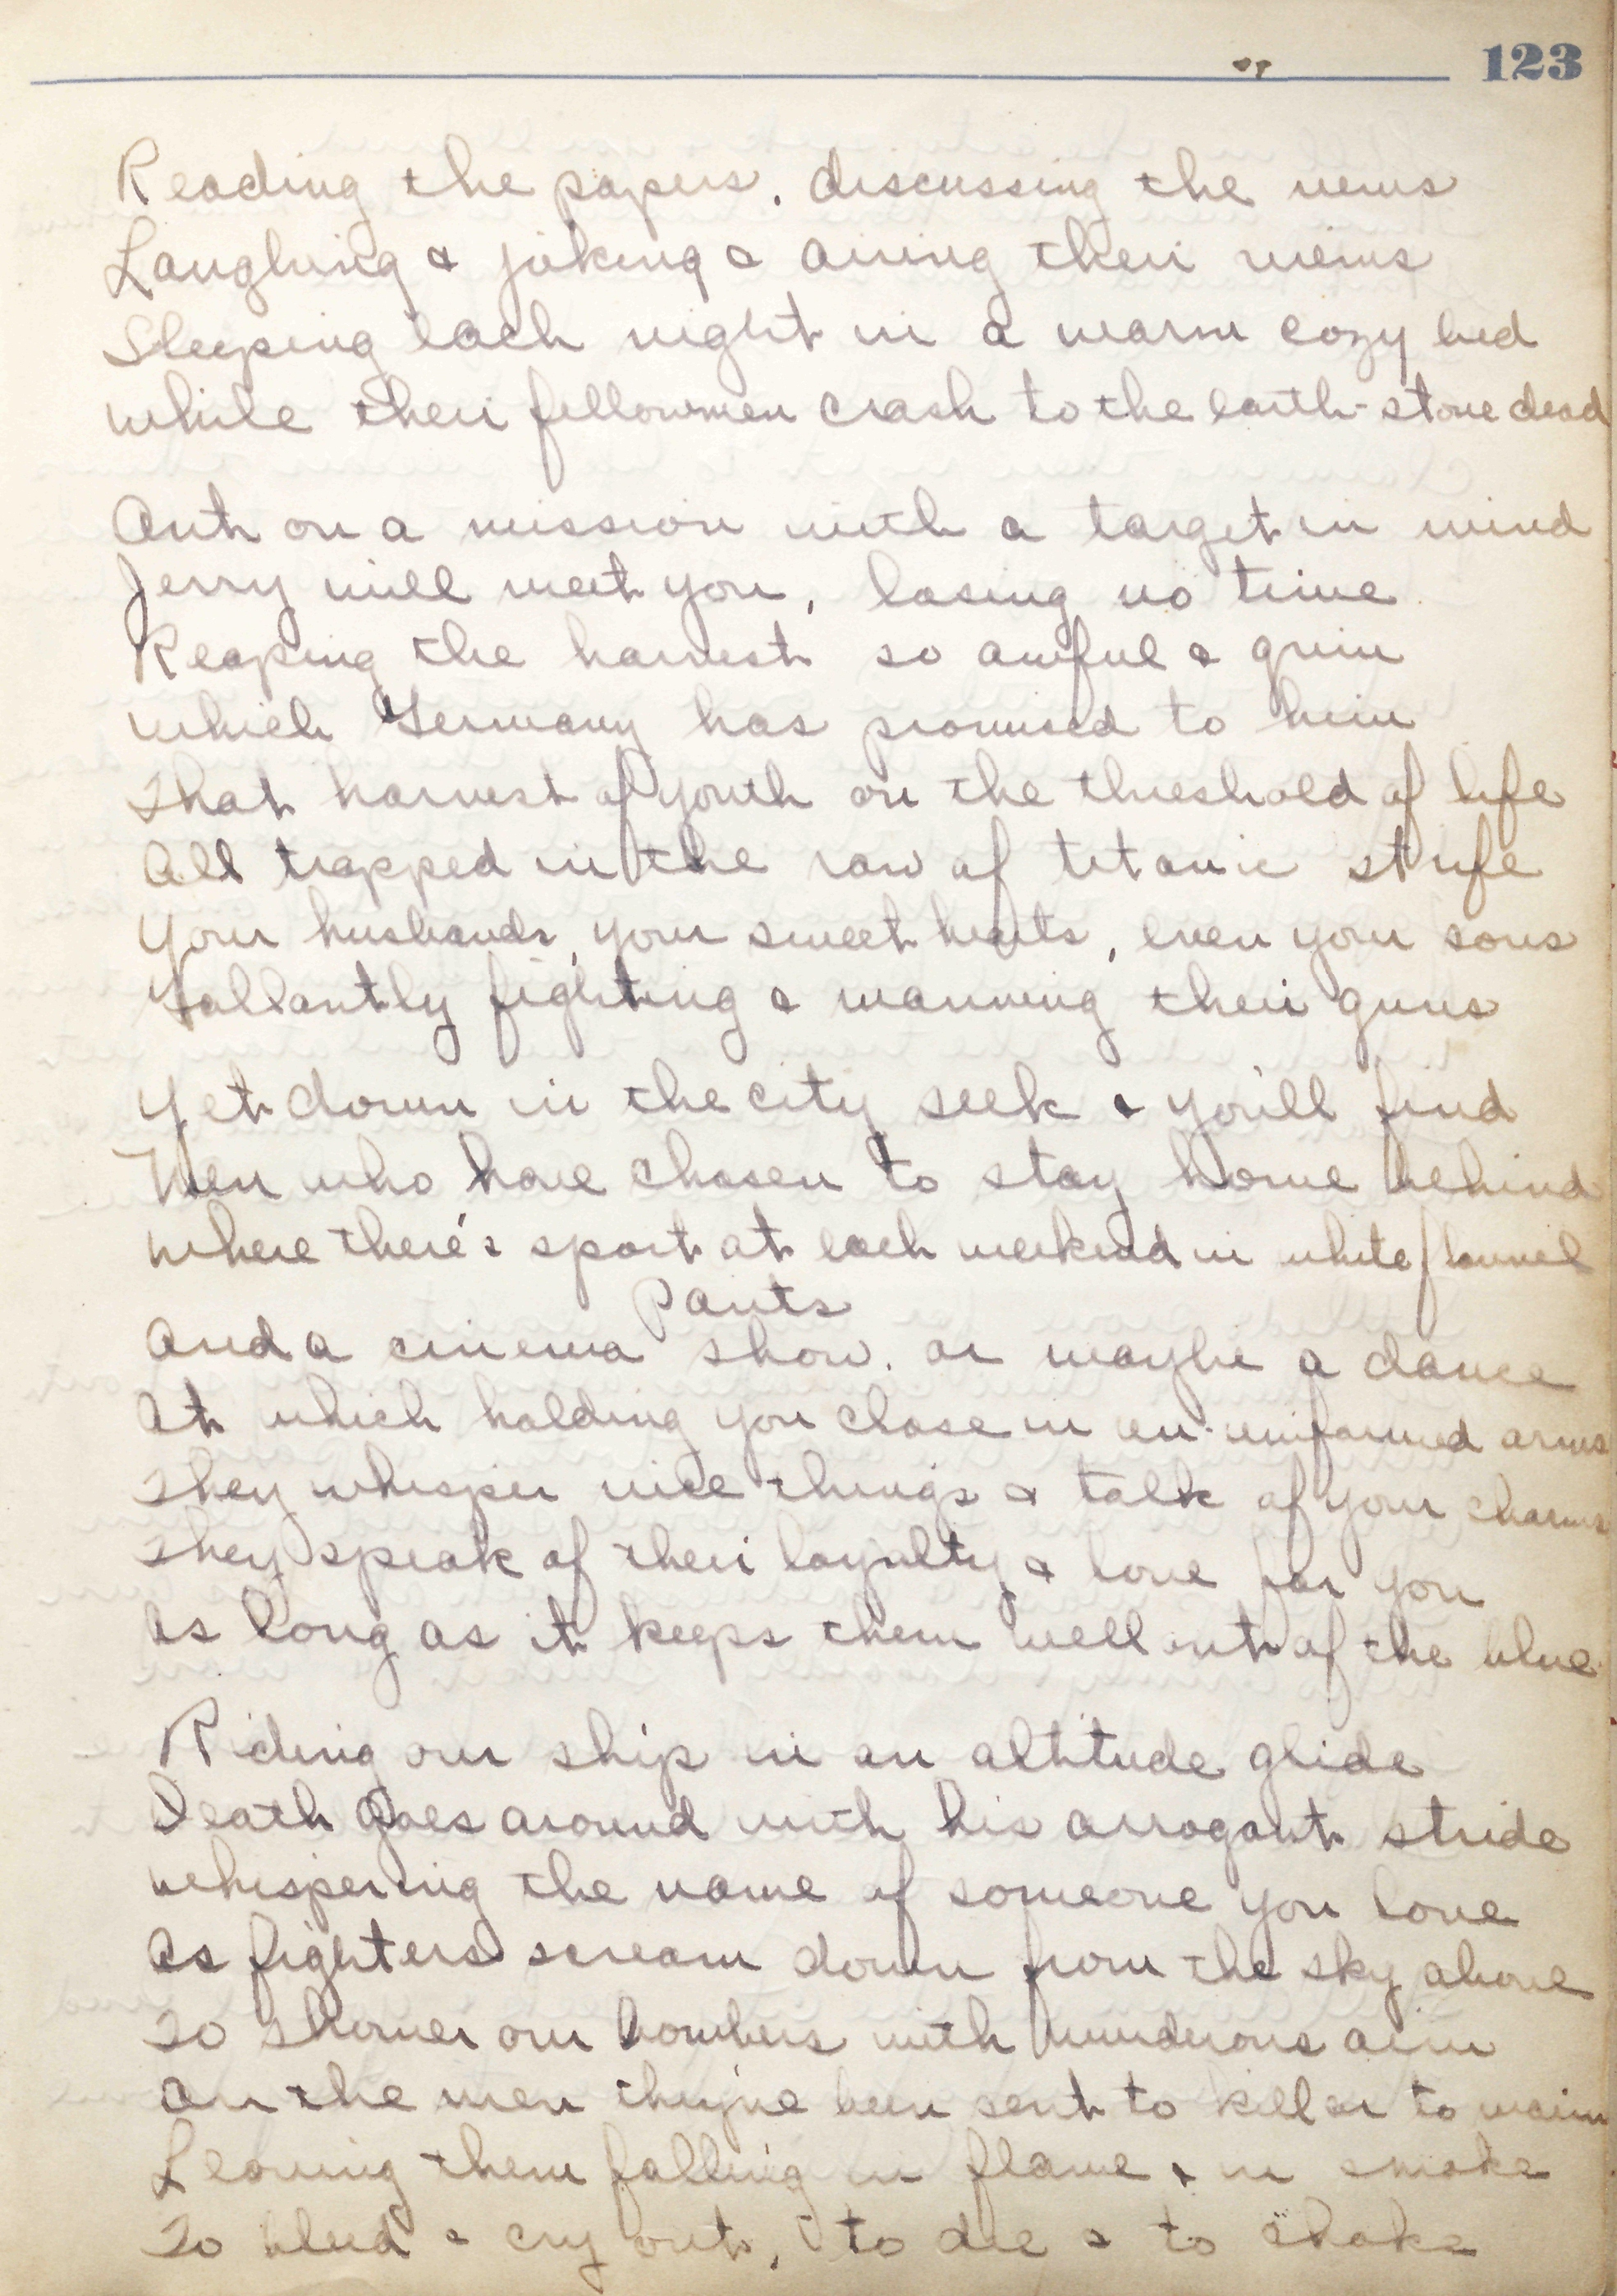 123
Reading the papers, discussing the news
Laughing & joking & airing their views
Sleeping each night in a warm cozy bed
while their fellowmen crash to the earth - stone dead
Out on a mission with a target in mind
Jerry will meet you, losing no time
Reaping the harvest so awful & grim
which Germany has promised to him
That harvest of youth on the threshold of life
All trapped in the raw of titanic strife
Your husbands, your sweethearts, even your sons
Gallantly fighting & manning their guns
Yet down in the city seek & you'll find
Men who have chosen to stay home behind
where there's sport at each weekend in white flannel
Pants
And a cinema show, or maybe a dance
At which holding you close in un-uniformed arms
They whisper nice things & talk of your charms
They speak of their loyalty & love for you
As long as it keeps them well out of the blue.
Riding our ship in an altitude glide
Death goes around with his arrogant stride
whispering the name of someone you love
As fighters scream down from the sky above
To shower our bombers with murderous aim
On the men they've been sent to kill or to maim
Leaving them falling in flame & in smoke
To bleed & cry out, to die & to choke